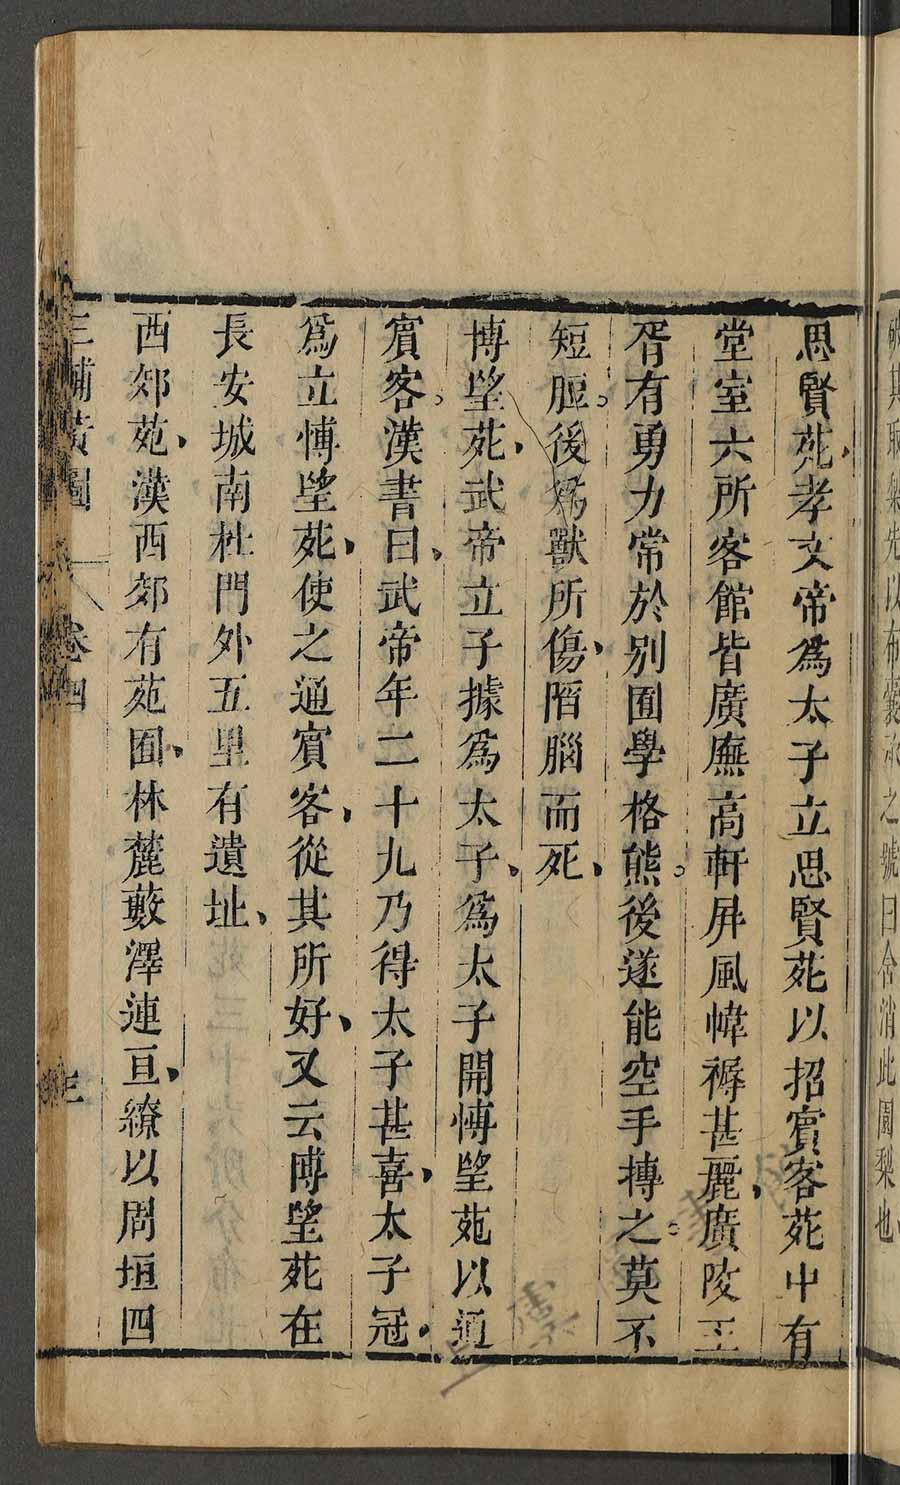 思賢苑孝文帝爲太子立思賢苑以招賓客苑中有
堂室六所客館皆廣廡高軒屏風幃褥甚麗廣陵王
胥有勇力常於别囿學格熊後遂能空手搏之莫不
短脰後爲獸所傷陷腦而死
博望苑武帝立子據爲太子爲太子開博望苑以通
賓客漢書曰武帝年二十九乃得太子甚喜太子冠
爲立博望苑使之通賓客從其所好又云博望苑在
長安城南杜門外五里有遺址
西郊苑漢西郊有苑囿林麓藪澤連亘繚以周垣四
三輔黃圖 卷四 三